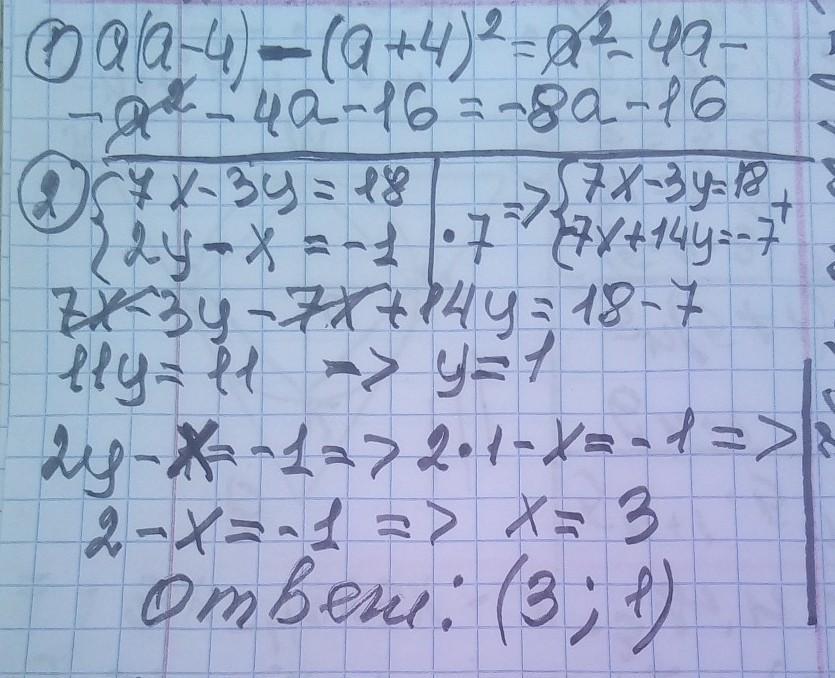 ① a(a-4) - (a+4)² = a² - 4a -
- a² - 4a - 16 = -8a - 16
② { 7x - 3y = 18 | => { 7x - 3y = 18 +
{ 2y - x = -1 | · 7 { 7x + 14y = -7
7x - 3y - 7x + 14y = 18 - 7
11y = 11 -> y = 1
2y - x = -1 => 2·1 - x = -1 =>
2 - x = -1 => x = 3
Ответ: (3; 1)